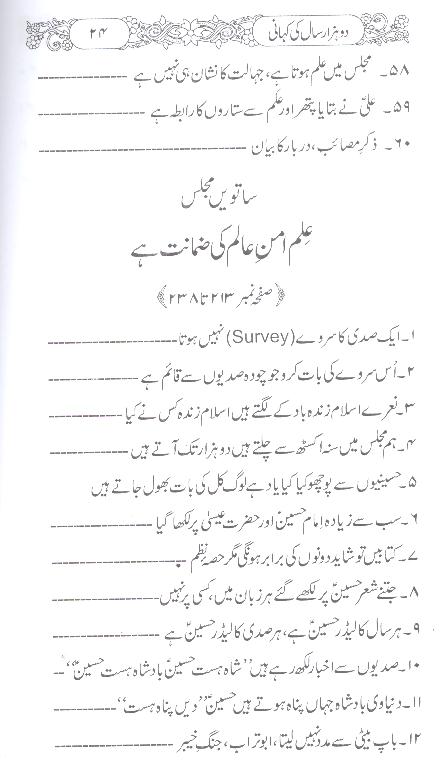 دو ہزار سال کی کہانی
۲۴
۵۸۔ مجلس میں علم ہوتا ہے، جہالت کا نشان ہی نہیں ہے
۵۹۔ علیؑ نے بتایا پتھر اور علَم سے ستاروں کا رابطہ ہے
۶۰۔ ذکرِ مصائب، دربار کا بیان
ساتویں مجلس
عِلم امنِ عالم کی ضمانت ہے
﴿صفحہ نمبر ۲۱۳ تا ۲۳۸﴾
۱۔ ایک صدی کا سروے (Survey) نہیں ہوتا
۲۔ اُس سروے کی بات کرو جو چودہ صدیوں سے قائم ہے
۳۔ نعرے اسلام زندہ باد کے لگتے ہیں اسلام زندہ کس نے کیا
۴۔ ہم مجلس میں سنہ اکسٹھ سے چلتے ہیں دو ہزار تک آتے ہیں
۵۔ حسینیوں سے پوچھو کیا کیا یاد ہے لوگ کل کی بات بھول جاتے ہیں
۶۔ سب سے زیادہ امام حسینؑ اور حضرت عیسیٰؑ پر لکھا گیا
۷۔ کتابیں تو شاید دونوں کی برابر ہونگی مگر حصہ نظم
۸۔ جتنے شعر حسینؑ پر لکھے گئے ہر زبان میں، کسی پر نہیں
۹۔ ہر سال کا لیڈر حسینؑ ہے، ہر صدی کا لیڈر حسینؑ ہے
۱۰۔ صدیوں سے اخبار لکھ رہے ہیں ”شاہ ہست حسینؑ بادشاہ ہست حسینؑ“
۱۱۔ دنیاوی بادشاہ جہاں پناہ ہوتے ہیں حسینؑ ”دیں پناہ ہست“
۱۲۔ باپ بیٹی سے مدد نہیں لیتا، ابوتراب، جنگِ خیبر